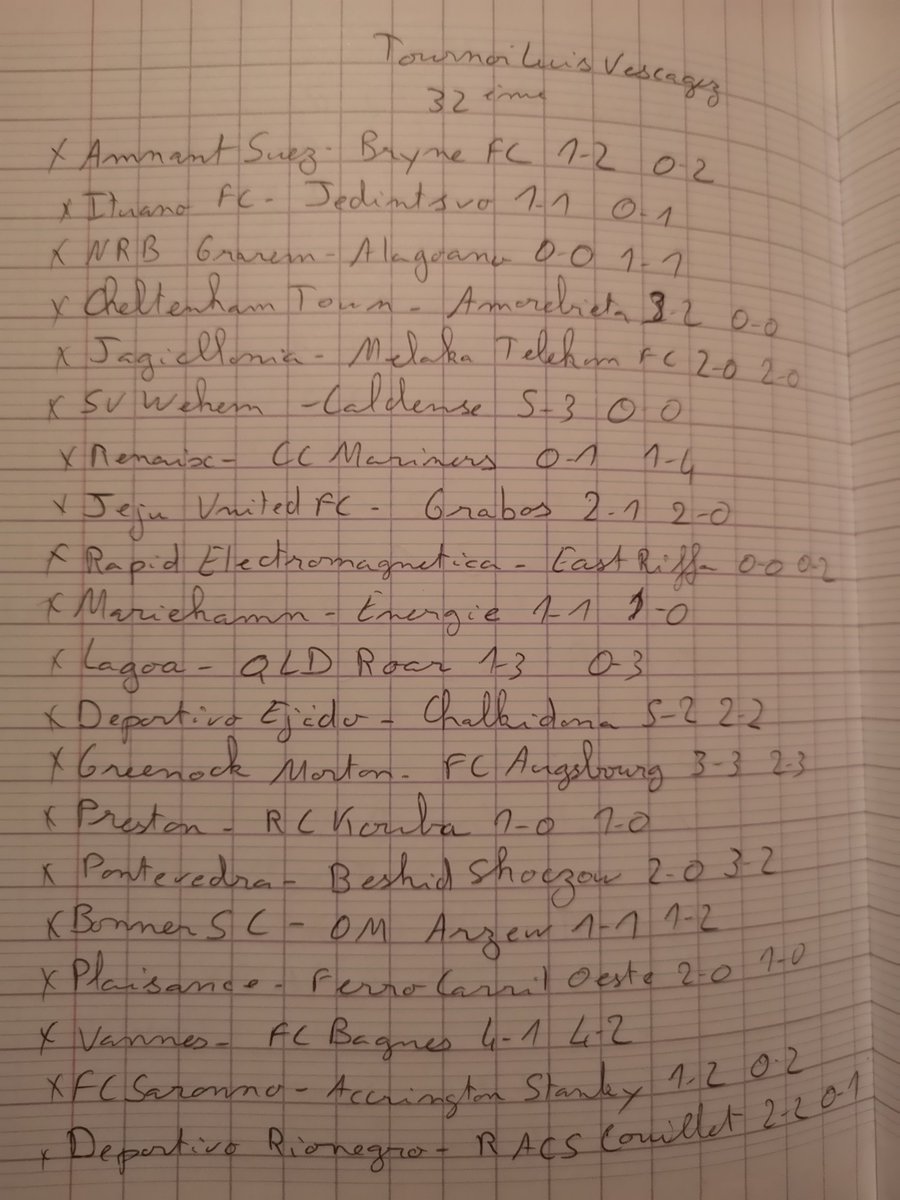 Tournoi Luis Vescagez
32 ème
x Amnant Suez - Bryne FC 1-2 0-2
x Ituano FC - Jedintsvo 1-1 0-1
x NRB Grarem - Alagoano 0-0 1-1
x Cheltenham Town - Amorebieta 3-2 0-0
x Jagiellonia - Melaka Telekom FC 2-0 2-0
x SV Wehem - Caldense 5-3 0-0
x Renaix - CC Mariners 0-1 1-4
x Jeju United FC - Grabos 2-1 2-0
x Rapid Electromagnetica - East Riffa 0-0 0-2
x Mariehamn - Energie 1-1 1-0
x Lagoa - QLD Roar 1-3 0-3
x Deportivo Ejido - Chalkidona 5-2 2-2
x Greenock Morton - FC Augsbourg 3-3 2-3
x Preston - RC Kouba 1-0 1-0
x Pontevedra - Beshid Shoezow 2-0 3-2
x Bonner SC - OM Arzew 1-1 1-2
x Plaisance - Ferro Carril Oeste 2-0 1-0
x Vannes - FC Bagnes 4-1 4-2
x FC Saronno - Accrington Stanley 1-2 0-2
x Deportivo Rionegro - RACS Couillet 2-2 0-1